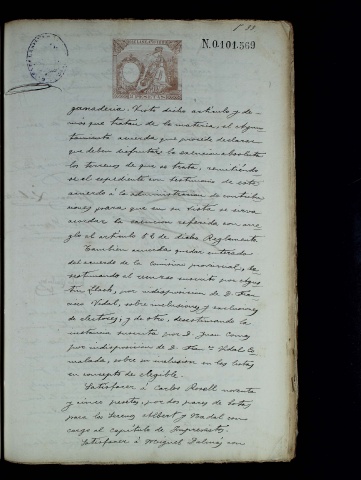 N.0.101.569
ganaderia. Visto dicho artículo y de-
más que tratan de la materia, el Ayun-
tamiento acuerda que procede declarar
que deben disfrutar la esencion absoluta
los terrenos de que se trata, remitiéndo-
se el expediente con testimonio de este
acuerdo á la Administracion de contribu-
ciones para que en su vista se sirva
acordar la esencion referida con arre-
glo al artículo de dicho Reglamento.
Tambien acuerda quedar enterado
del acuerdo de la Comision provincial, de-
sestimando el recurso suscrito por Agus-
tin Llach, por indisposicion de D. Fran-
cisco Vidal, sobre inclusiones y exclusiones
de electores, y de otro, desestimando la
instancia suscrita por D. Juan Comas
por indisposicion de D. Vidal
sobre su inclusion en las listas
en concepto de elegible.
Satisfacer á Carlos Rosell noventa
y cinco pesetas, por dos pares de botas
para los Serenos Albert y Nadal con
cargo al capítulo de Imprevistos.
Satisfacer á Miguel Dalmáu con